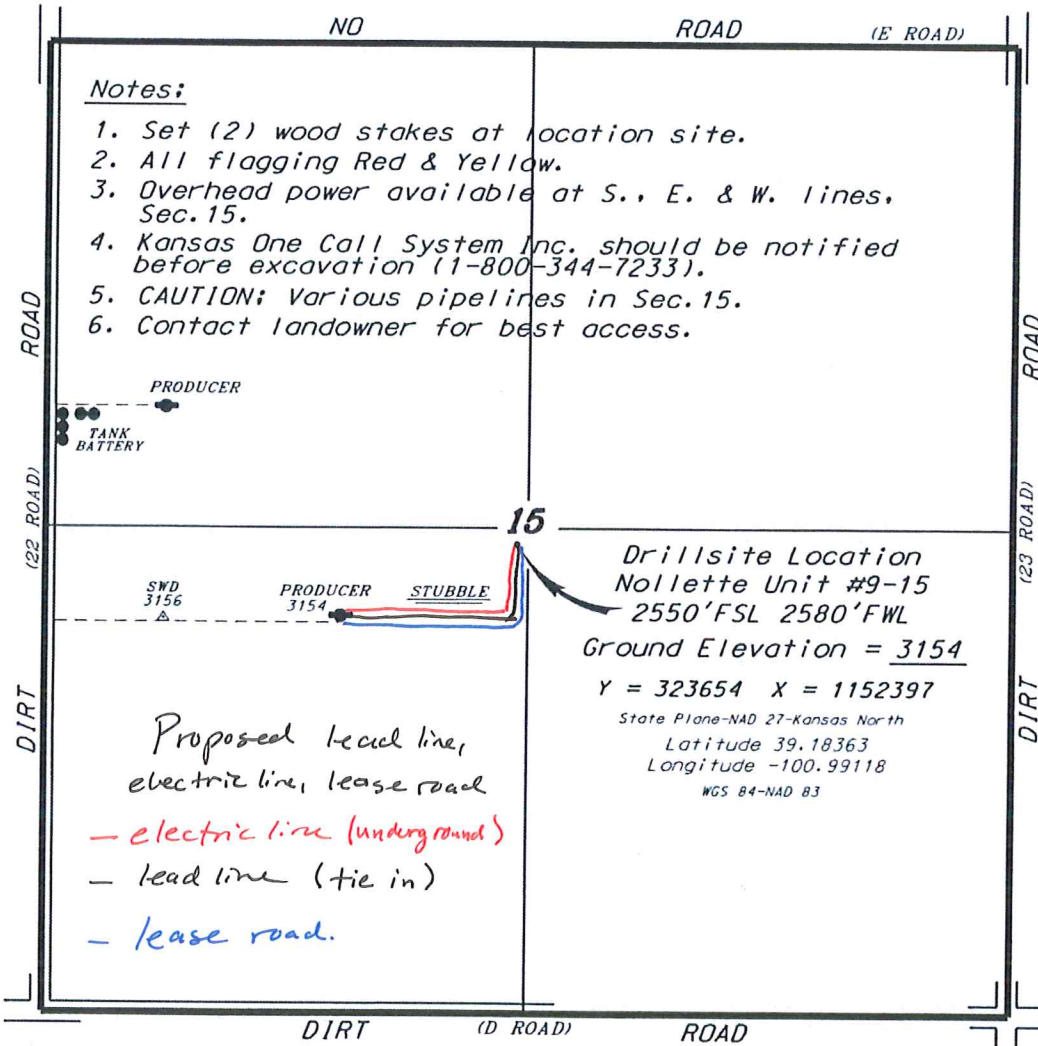 NO ROAD (E ROAD)
Notes:
1. Set (2) wood stakes at location site.
2. All flagging Red & Yellow.
3. Overhead power available at S., E. & W. lines,
Sec. 15.
4. Kansas One Call System Inc. should be notified
before excavation (1-800-344-7233).
5. CAUTION: Various pipelines in Sec. 15.
6. Contact landowner for best access.
ROAD
(22 ROAD)
DIRT
ROAD
(23 ROAD)
DIRT
PRODUCER
TANK
BATTERY
15
SWD
3156
PRODUCER
3154
STUBBLE
Drillsite Location
Nollette Unit #9-15
2550'FSL 2580'FWL
Ground Elevation = 3154
Y = 323654 X = 1152397
State Plane-NAD 27-Kansas North
Latitude 39.18363
Longitude -100.99118
WGS 84-NAD 83
Proposed lead line,
electric line, lease road
— electric line (underground)
— lead line (tie in)
— lease road.
DIRT (D ROAD) ROAD